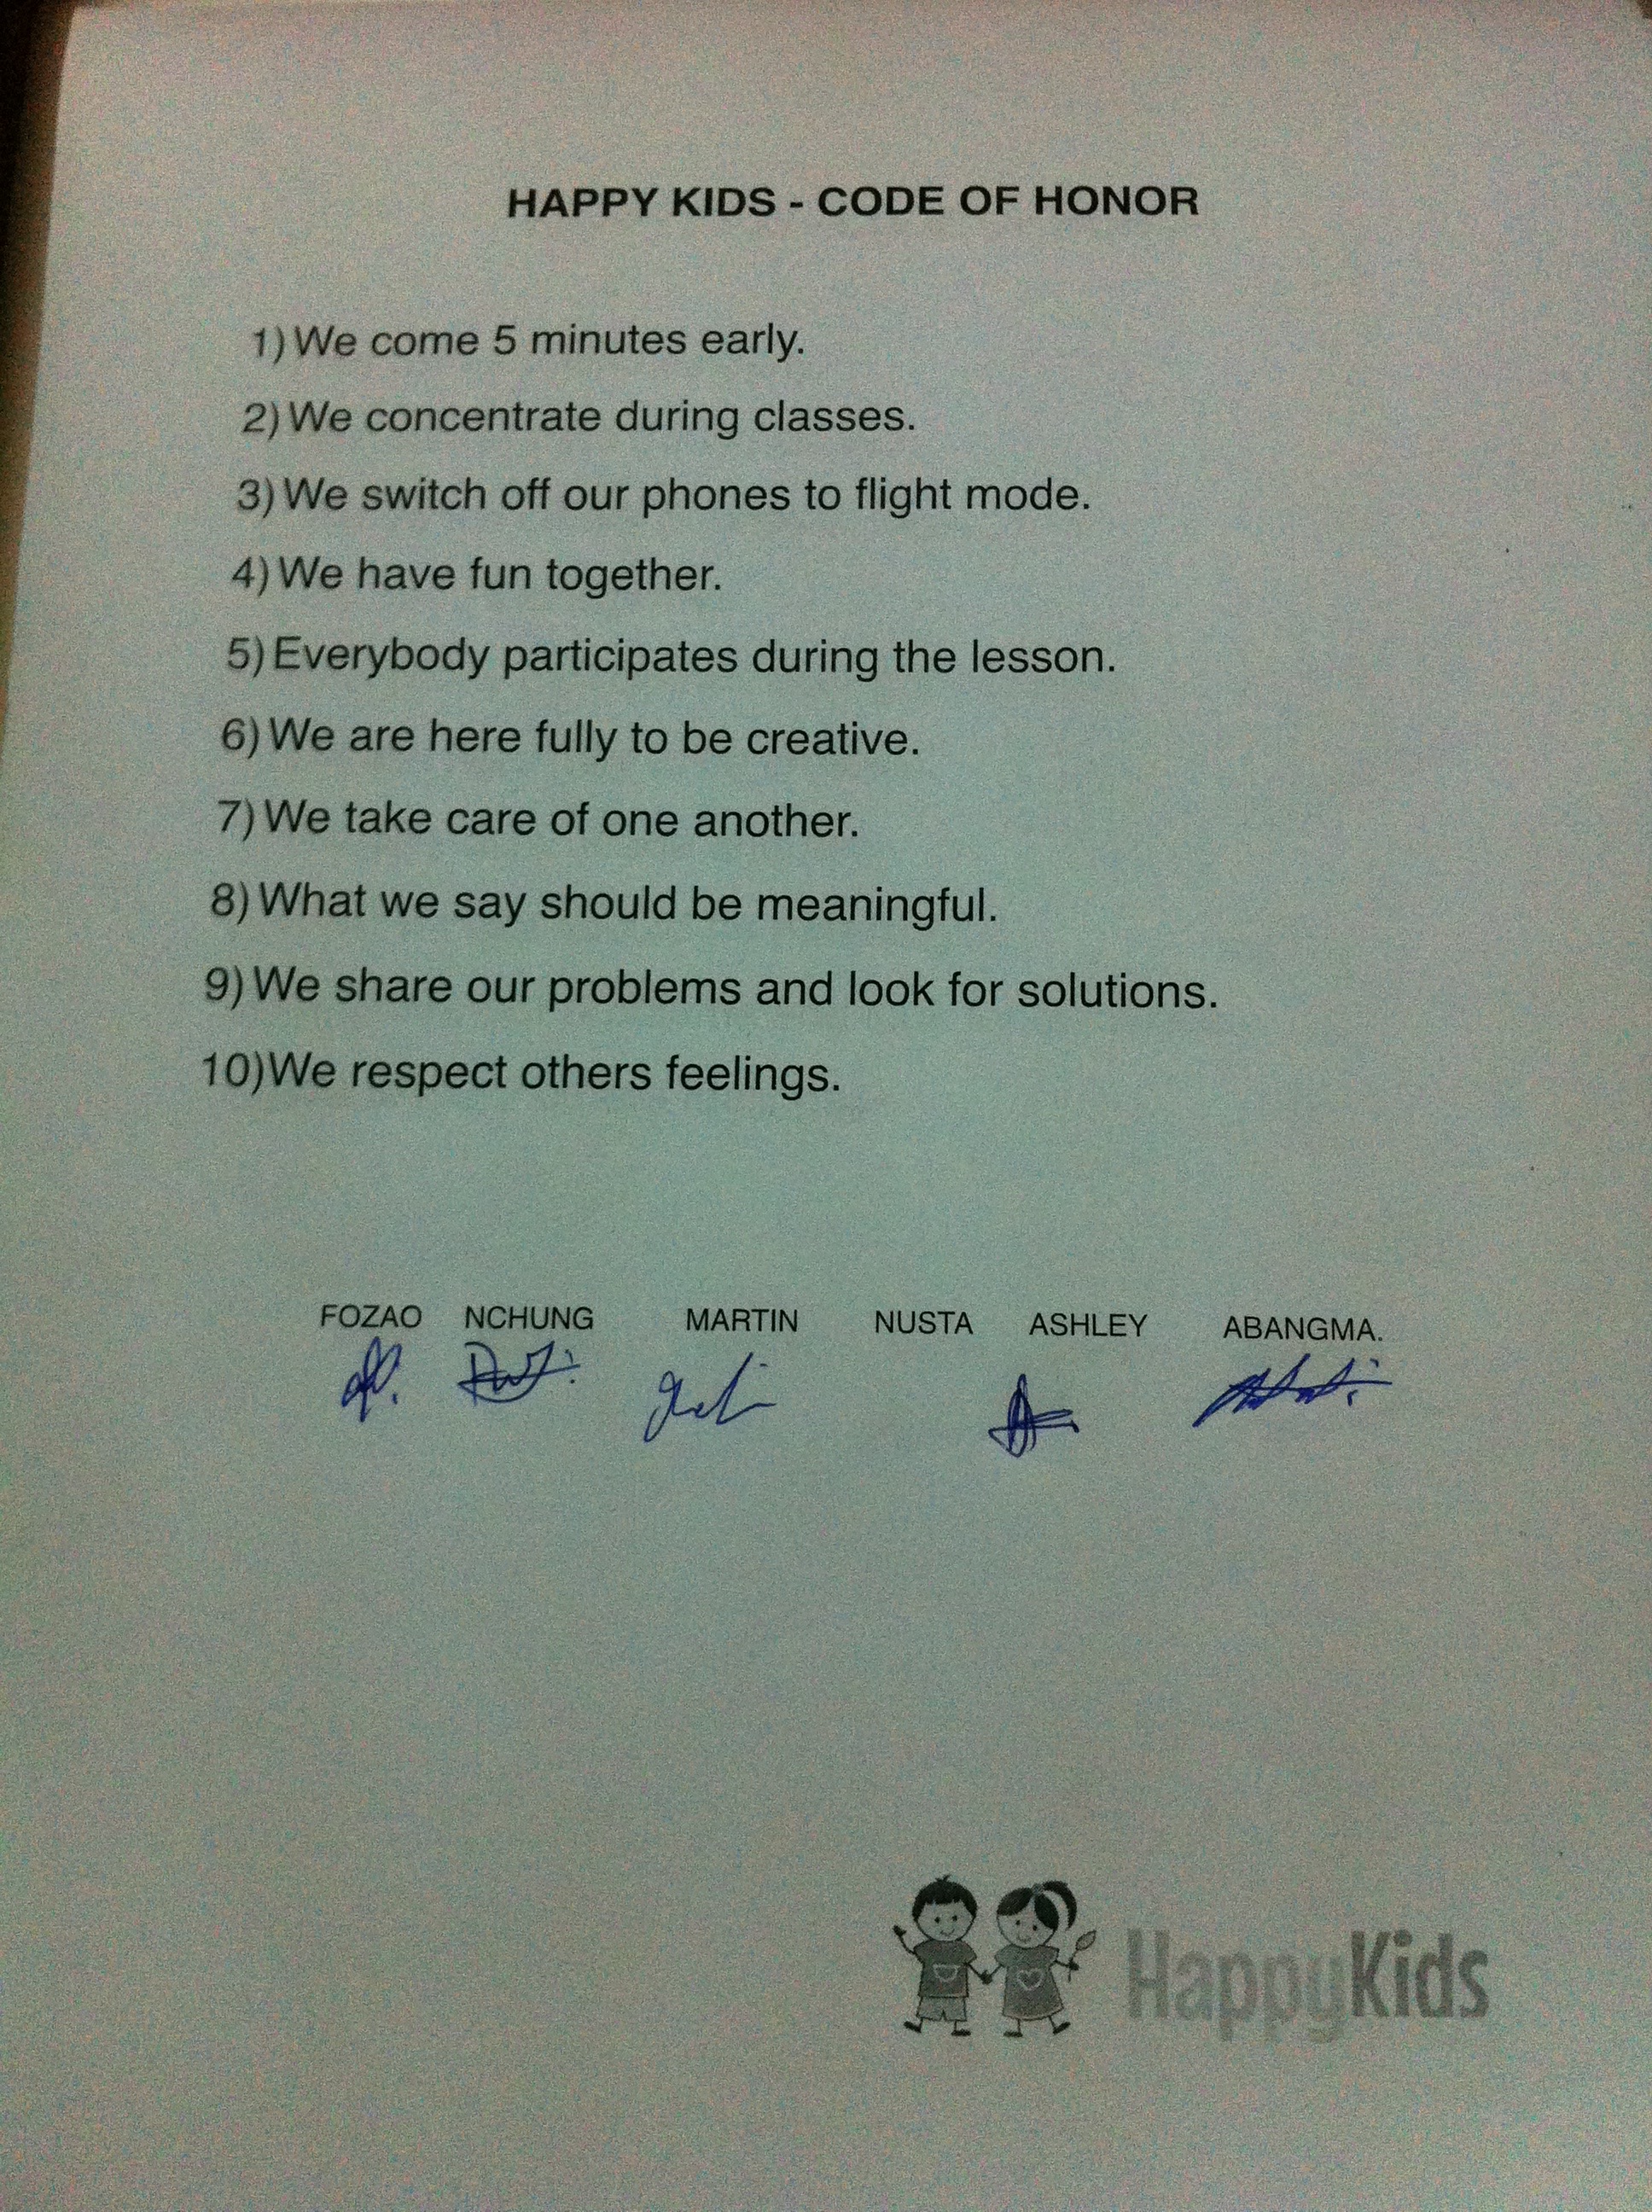 HAPPY KIDS - CODE OF HONOR
1) We come 5 minutes early.
2) We concentrate during classes.
3) We switch off our phones to flight mode.
4) We have fun together.
5) Everybody participates during the lesson.
6) We are here fully to be creative.
7) We take care of one another.
8) What we say should be meaningful.
9) We share our problems and look for solutions.
10)We respect others feelings.
FOZAO NCHUNG MARTIN NUSTA ASHLEY ABANGMA.
HappyKids